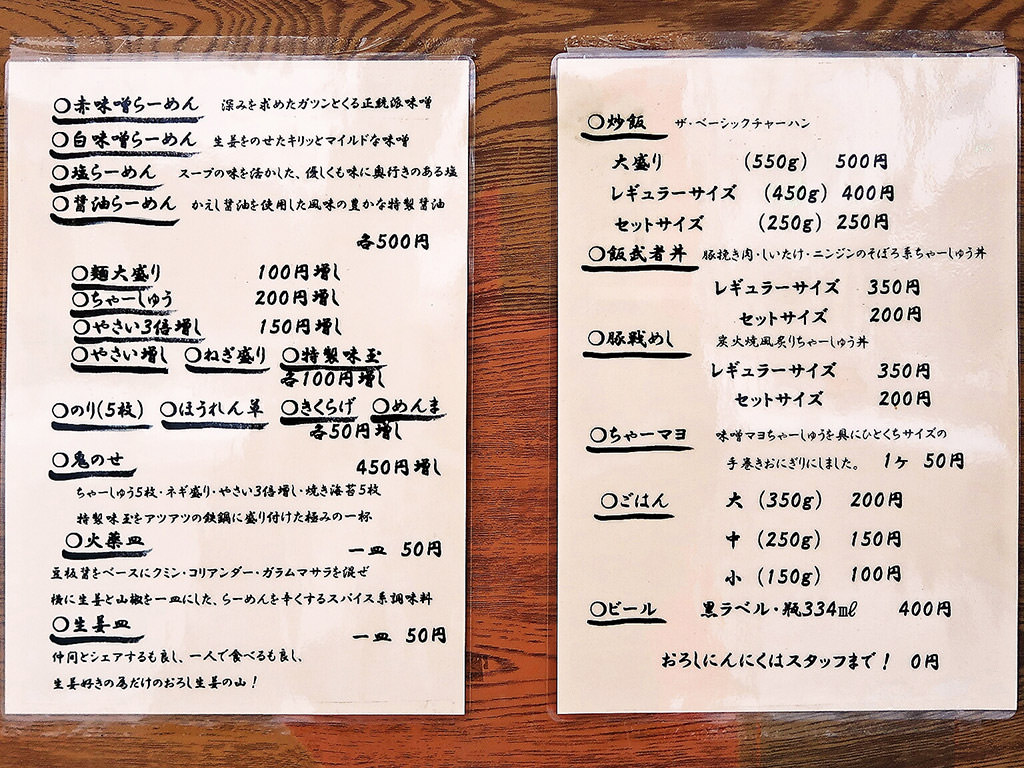 ○赤味噌らーめん 深みを求めたガツンとくる正統派味噌
○白味噌らーめん 生姜をのせたキリッとマイルドな味噌
○塩らーめん スープの味を活かした、優しくも味に奥行きのある塩
○醤油らーめん かえし醤油を使用した風味の豊かな特製醤油
各500円
○麺大盛り 100円増し
○ちゃーしゅう 200円増し
○やさい3倍増し 150円増し
○やさい増し ○ねぎ盛り ○特製味玉
各100円増し
○のり(5枚) ○ほうれん草 ○きくらげ ○めんま
各50円増し
○鬼のせ 450円増し
ちゃーしゅう5枚・ネギ盛り・やさい3倍増し・焼き海苔5枚
特製味玉をアツアツの鉄鍋に盛り付けた極みの一杯
○火薬皿 一皿 50円
豆板醤をベースにクミン・コリアンダー・ガラムマサラを混ぜ
横に生姜と山椒を一皿にした、らーめんを辛くするスパイス系調味料
○生姜皿 一皿 50円
仲間とシェアするも良し、一人で食べるも良し、
生姜好きの為だけのおろし生姜の山!
○炒飯 ザ・ベーシックチャーハン
大盛り (550g) 500円
レギュラーサイズ (450g) 400円
セットサイズ (250g) 250円
○飯武者丼 豚挽き肉・しいたけ・ニンジンのそぼろ系ちゃーしゅう丼
レギュラーサイズ 350円
セットサイズ 200円
○豚戦めし 炭火焼風炙りちゃーしゅう丼
レギュラーサイズ 350円
セットサイズ 200円
○ちゃーマヨ 味噌マヨちゃーしゅうを具にひとくちサイズの
手巻きおにぎりにしました。 1ヶ 50円
○ごはん 大 (350g) 200円
中 (250g) 150円
小 (150g) 100円
○ビール 黒ラベル・瓶334㎖ 400円
おろしにんにくはスタッフまで! 0円